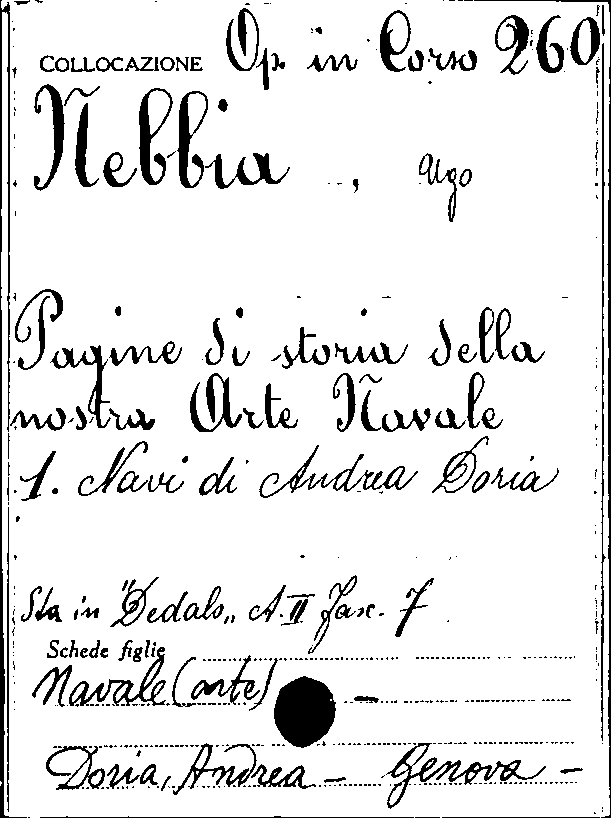 COLLOCAZIONE Op. in Corso 260
Nebbia , Ugo
Pagine di storia della
nostra Arte Navale
1. Navi di Andrea Doria
Sta in "Dedalo„ A. II Fasc. 7
Schede figlie
Navale (arte) –
Doria, Andrea – Genova –